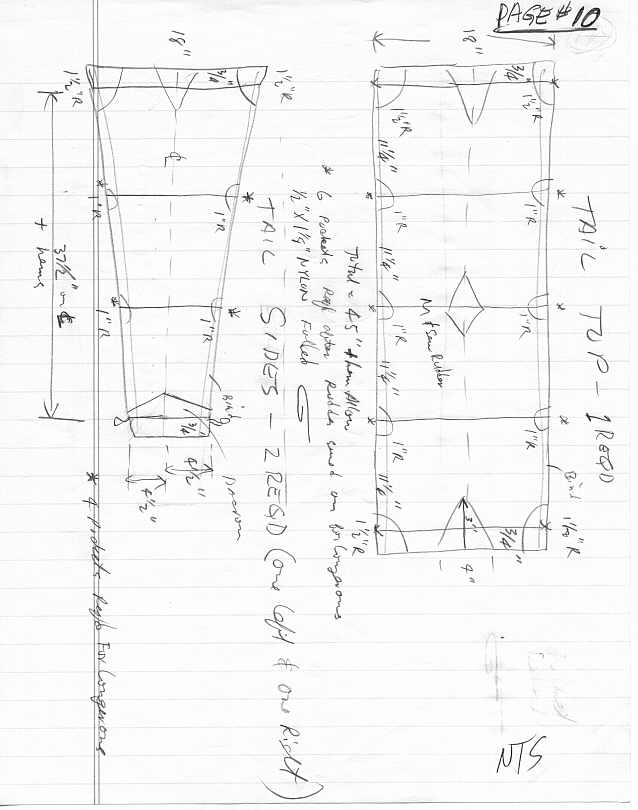 PAGE #10
TAIL TOP - 1 REQD
18"
3/4"
1½"R
1½"R
11¼"
1"R
1"R
11¼"
1"R
1"R
M & Sew Rubber
11¼"
1"R
1"R
11¼"
Bind
1½"R
1½"R
3/4"
3"
4"
Total = 45" + hem Allow
* 6 Pockets Reqd after Rubber sewed on for Longerons
½" X 1¼" NYLON Folded
TAIL SIDES - 2 REQD (one Left & one Right)
18"
3/4"
1½"R
1½"R
℄
1"R
1"R
1"R
1"R
37½" on ℄
+ hems
Bind
Dacron
3/4"
4½"
4½"
* 4 Pockets Reqd For Longerons
NTS